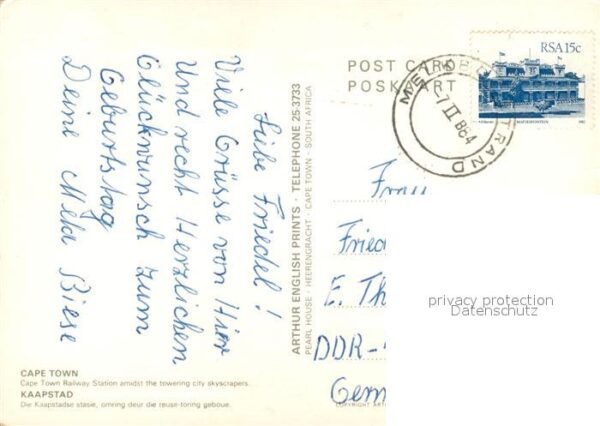 Liebe Friedel!
Viele Grüsse von Hier
Und recht Herzlichen
Glückwunsch zum
Geburtstag
Deine Mela Biese
POST CARD
POSKAART
RSA 15c
STRAND
-7 II 84
Frau
Fried
E. Th
DDR-
Germ
privacy protection
Datenschutz
ARTHUR ENGLISH PRINTS · TELEPHONE 25-3733
PEARL HOUSE · HEERENGRACHT · CAPE TOWN · SOUTH AFRICA
CAPE TOWN
Cape Town Railway Station amidst the towering city skyscrapers.
KAAPSTAD
Die Kaapstadse stasie, omring deur die reuse-toring geboue.
COPYRIGHT ART